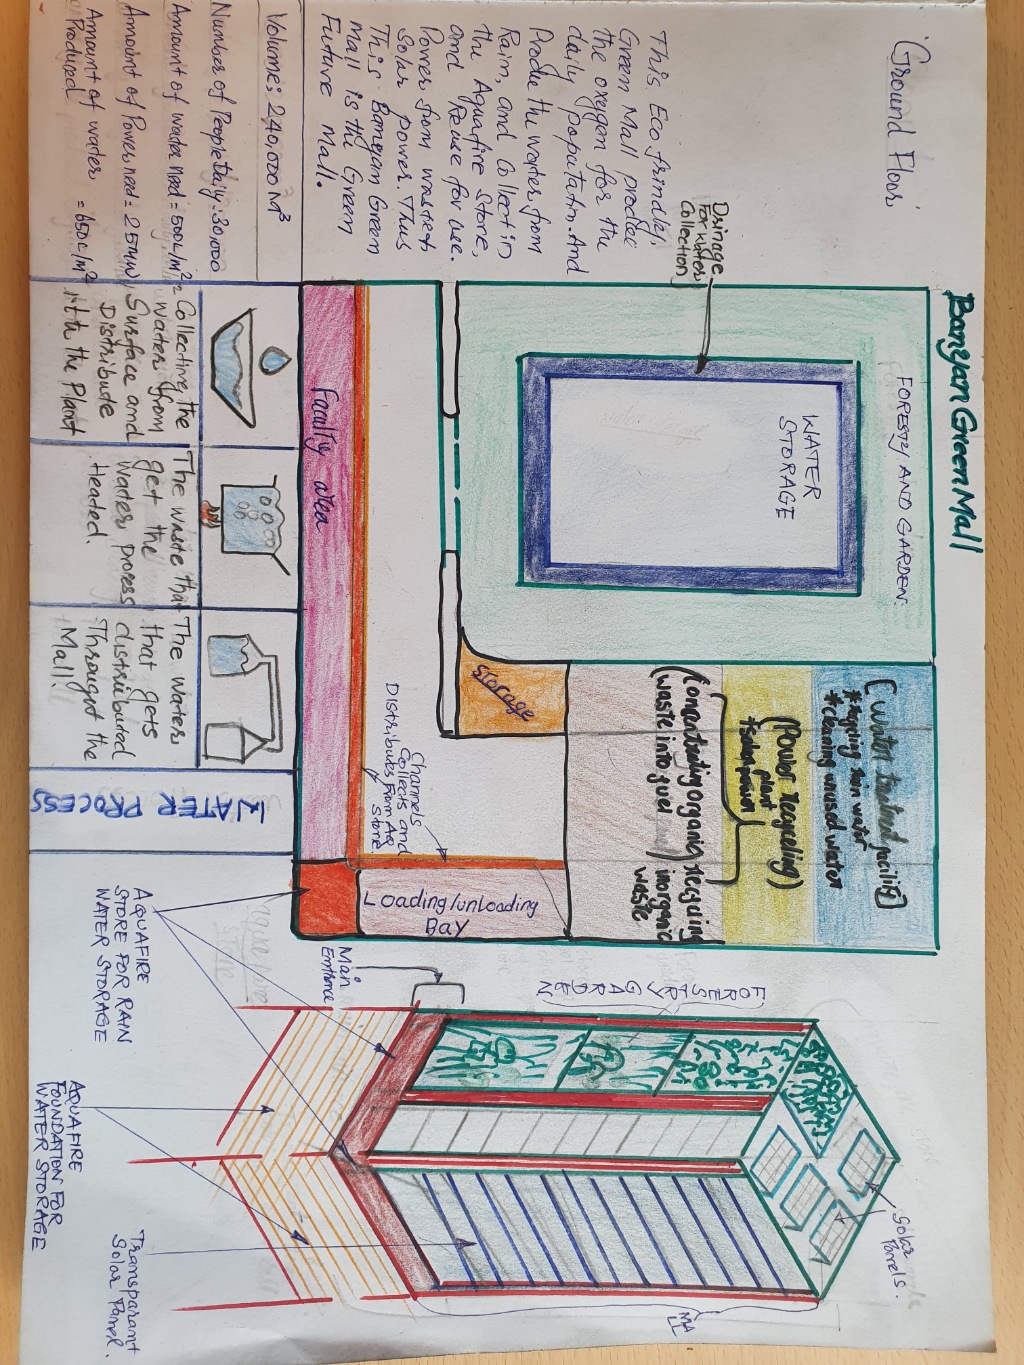 Banyan Green Mall
'Ground Floor'
This Eco frindely,
Green Mall produce
the oxegen for the
daily poputatn. And
Produ the water from
Rain, and Collect in
the Aquafire Stone,
and Reuse for use.
Power from wasted
Solar power. Thus
This Banyan Green
mall is the Green
Future Mall.
Volume: 240,000 M³
Number of People Daily: 30,000
Amount of water need = 500L/m²
Amount of Power need = 25MW
Amount of water = 650L/m²
Produced
Drinage
For water
Collection
FORESTY AND GARDEN.
WATER
STORAGE
(water treatment facility)
*Recycling rain water
*cleaning unused water
(Power recycling)
plant
*Solar power
(Concentrating organic recycling
(waste into fuel) inorganic
waste
Storage
Channels
Collects and
Distributes from Aq
Stone
Loading/unloading
Bay
Faculty area
Collecting the
waters from
Surface and
Distribute
it to the Plant
The waste that
get the
water, process
Heated.
The water
that gets
distributed
Throught the
Mall.
WATER PROCESS
Main
Entrance
FORESTRY GARDEN
Solar
Panels.
MALL
AQUAFIRE
STORE FOR RAIN
WATER STORAGE
AQUAFIRE
FOUNDATION FOR
WATER STORAGE
Transparant
Solar Panel.